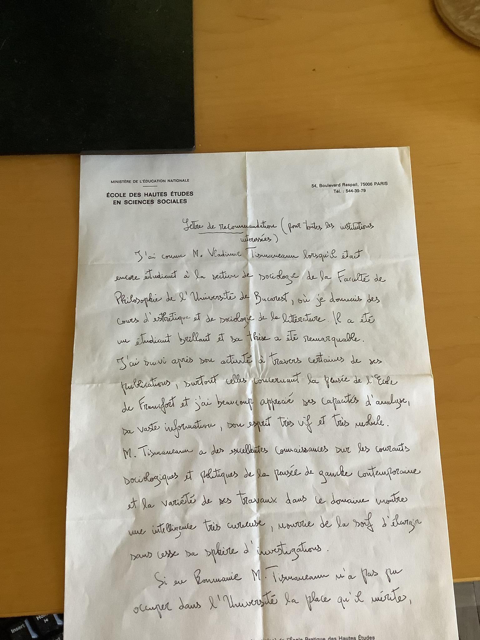 MINISTÈRE DE L'ÉDUCATION NATIONALE
ÉCOLE DES HAUTES ÉTUDES
EN SCIENCES SOCIALES
54, Boulevard Raspail, 75006 PARIS
Tél. : 544-39-79
Lettre de recommandation (pour toutes les institutions
intéressées)
J'ai connu M. Vladimir Tismaneanu lorsqu'il était
encore étudiant à la section de sociologie de la Faculté de
Philosophie de l'Université de Bucarest, où je donnais des
cours d'esthétique et de sociologie de la littérature. Il a été
un étudiant brillant et sa thèse a été remarquable.
J'ai suivi après son activité à travers certaines de ses
publications, surtout celles concernant la pensée de l'Ecole
de Francfort et j'ai beaucoup apprécié ses capacités d'analyse,
sa vaste information, son esprit très vif et très mobile.
M. Tismaneanu a des excellentes connaissances sur les courants
sociologiques et politiques de la pensée de gauche contemporaine
et la variété de ses travaux dans le domaine montre
une intelligence très curieuse, nourrie de la soif d'élargir
sans cesse sa sphère d'investigations.
Si en Roumanie M. Tismaneanu n'a pas pu
occuper dans l'Université la place qu'il mérite,